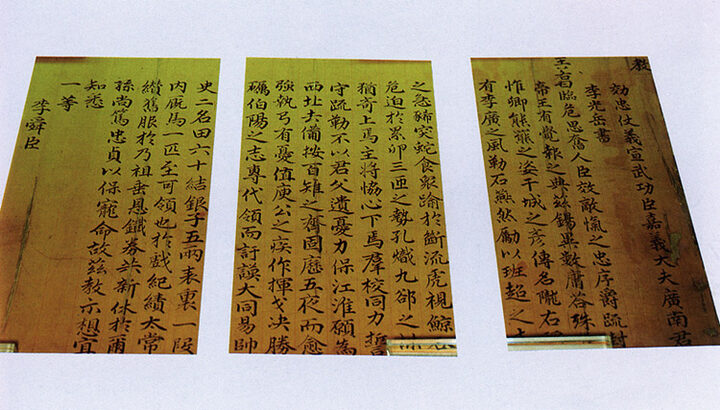 教
効忠仗義宣武功臣嘉義大夫廣南君
李光岳書
王若曰臨危思奮人臣效敵愾之忠序爵疏封
帝王有覺報之典玆錫異數庸答殊
惟卿熊羆之姿干城之彦傳名隴右
有李廣之風勒石燕然勵以班超之
之急豨突蛇食衆踰於斷流虎視鯨
危迫於累卵三匝之勢孔熾九郤之
猶奇上馬主將恊心下馬羣校同力誓
守疏勒不以君父遺憂力保江淮願為
西北去備按百雉之齊固歷五夜而愈
強執弓有憂値庾公之疾作揮戈决勝
礪伯陽之志專代領而訏謨大同易帥
史二名田六十結銀子五兩表裏一段
内廐馬一匹至可領也於戲紀績太常
纘舊服於乃祖垂恩鐵券共新休於爾
孫尚篤忠貞以保寵命故玆教示想宜
知悉
一等
李舜臣